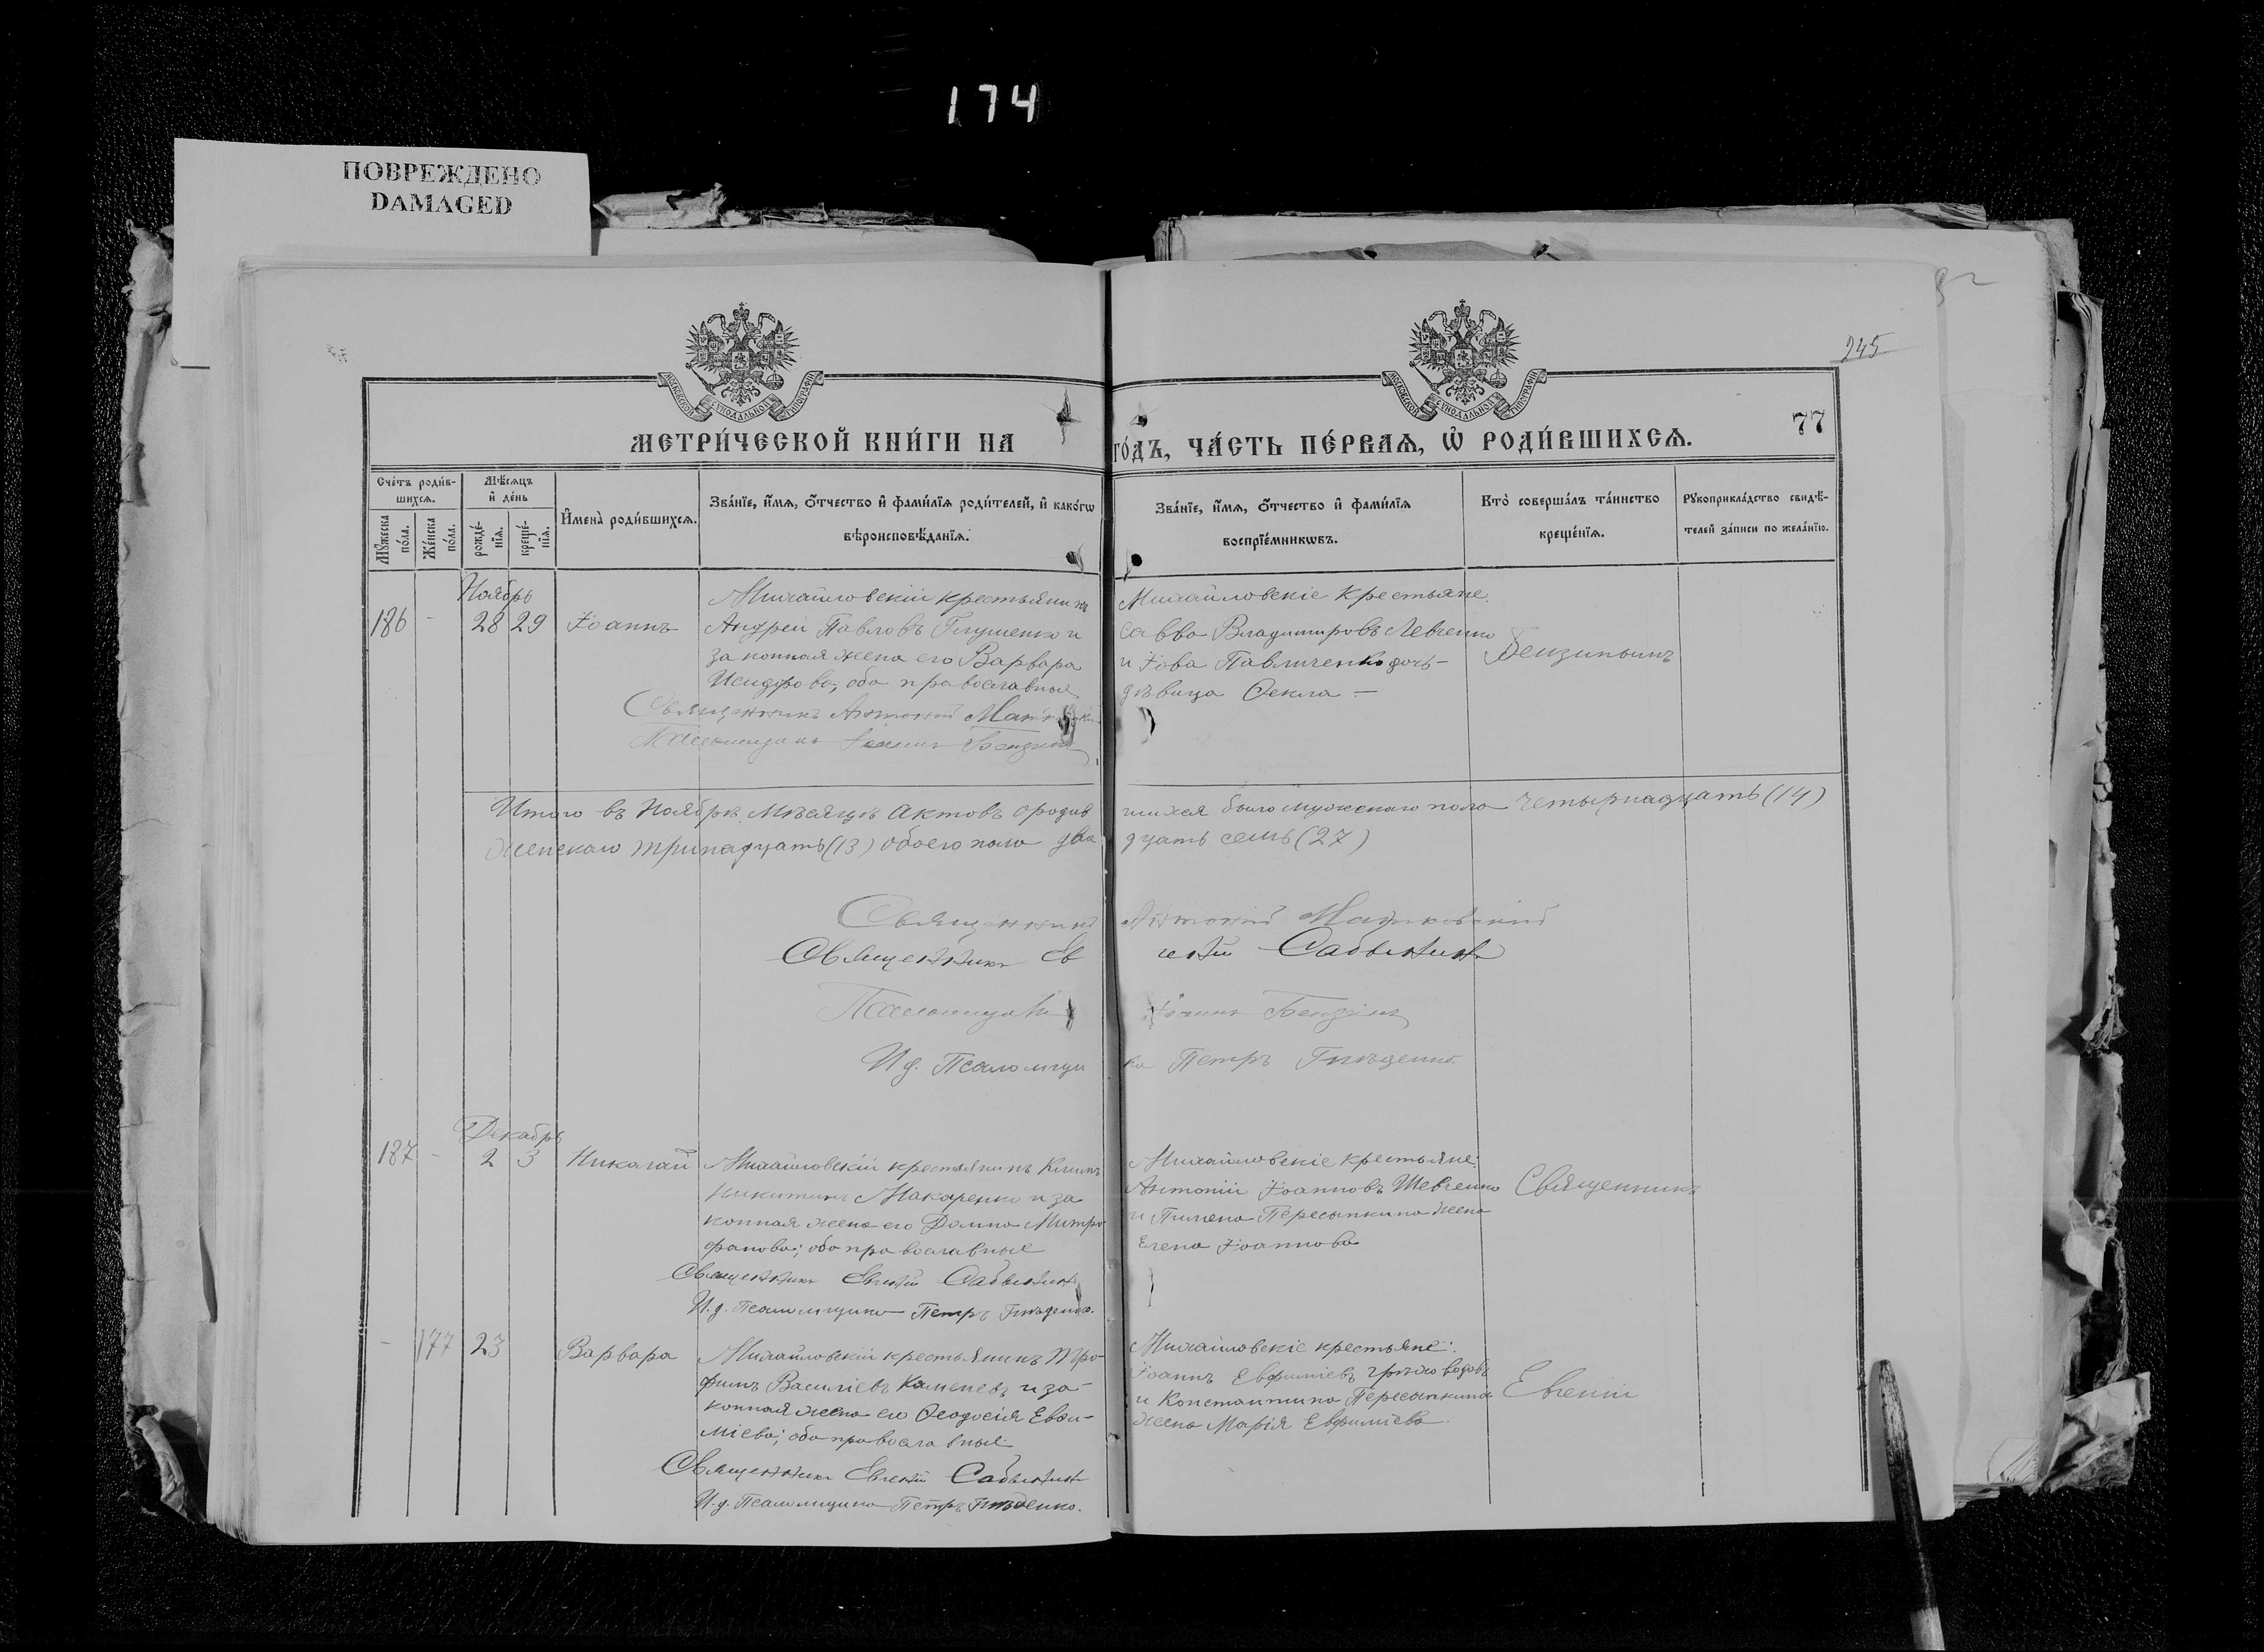 174
ПОВРЕЖДЕНО
DAMAGED
245
77
МОСКОВСКОЙ СѴНОДАЛЬНОЙ ТИПОГРАФІИ
МОСКОВСКОЙ СѴНОДАЛЬНОЙ ТИПОГРАФІИ
МЕТРИ́ЧЕСКОЙ КНИ́ГИ НА ГО́ДЪ, ЧА́СТЬ ПЕ́РВАѦ, Ѡ РОДИ́ВШИХСѦ.
Сче́тъ роди́в-
шихсѧ.
Мꙋ́жеска по́ла.
Же́нска по́ла.
Мѣ́сѧцъ
и҆ де́нь
рожде́-
нїѧ.
креще́-
нїѧ.
И҆мена̀ роди́вшихсѧ.
Зва́нїе, и҆́мѧ, ѻ҆́тчество и҆ фами́лїѧ роди́телей, и҆ како́гѡ
вѣроисповѣ́данїѧ.
Зва́нїе, и҆́мѧ, ѻ҆́тчество и҆ фами́лїѧ
воспрїе́мникѡвъ.
Кто̀ соверша́лъ та́инство
креще́нїѧ.
Рꙋкоприкла́дство свидѣ́-
телей за́писи по жела́нїю.
Ноябрь
186 - 28 29 Іоаннъ
Михайловскій крестьянинъ
Андрей Павловъ Глущенко и
законная жена его Варвара
Исидрова, оба православные
Священникъ Антоній
Псаломщикъ Іоаннъ Бензинъ
Михайловскіе крестьяне
Савва Владимировъ Левченко
и Іова Павличенко дочь-
дѣвица Ѳекла —
Итого въ Ноябрѣ мѣсяцѣ актовъ о родив шихся было мужского пола четырнадцать (14)
женскаго тринадцать (13) обоего пола два дцать семь (27)
Священникъ Антоній
Священникъ Ев геній Сабынин
Псаломщикъ Іоаннъ Бензинъ
И д. Псаломщи ка Петръ Гнѣденко.
Декабрь
187 - 2 3 Николай
Михайловскій крестьянинъ Климъ
Никитинъ Макаренко и за
конная жена его Домна Митро
фанова; оба православные
Священникъ Евгеній Сабынин
И. д. Псаломщика Петръ Гнѣденко.
Михайловскіе крестьяне:
Антоній Іоанновъ Шевченко
и Пимена Пересыпкина жена
Елена Іоаннова
Священникъ
- 177 23 Варвара
Михайловскій крестьянинъ Тро-
фимъ Василіевъ Каменевъ и за
конная жена его Ѳеодосія Евѳи-
міева; оба православные
Священникъ Евгеній Сабынин
И. д. Псаломщика Петръ Гнѣденко.
Михайловскіе крестьяне:
Іоаннъ Евфиміевъ
и Константина Пересыпкина
жена Марія Евфиміева
Евгеній